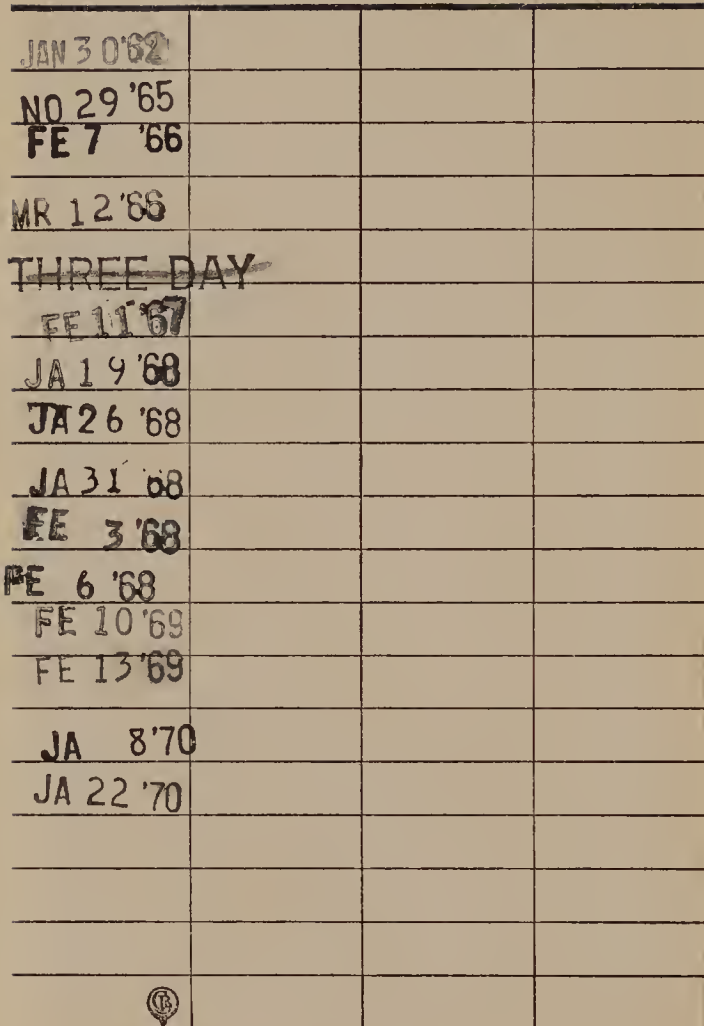 JAN 30 '62
NO 29 '65
FE 7 '66
MR 12 '66
THREE DAY
FE 11 '67
JA 19 '68
JA 26 '68
JA 31 68
FE 3 '68
FE 6 '68
FE 10 '69
FE 13 '69
JA 8 '70
JA 22 '70